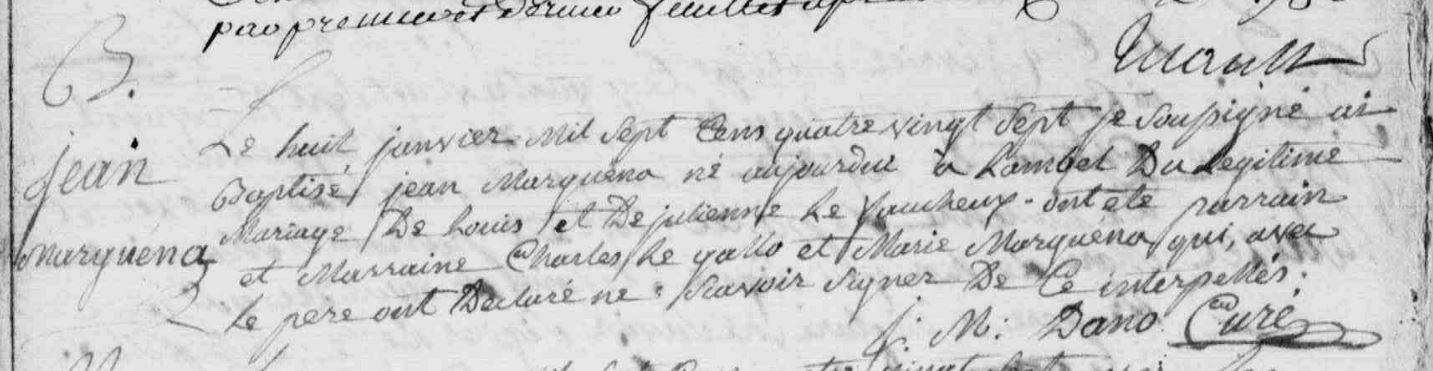 par premier et dernier feuillet
B.
jean
Marguéna
Le huit janvier Mil Sept Cens quatre vingt Sept je Soussigné ai
Baptisé jean Marguéna né aujourdui à Lambel Du Legitime
Mariage De Louis et De julienne Le faucheux. ont eté parrain
et Marraine Charles Le gallo et Marie Marguéna qui, avec
Le pere ont Declaré ne Scavoir Signer De Ce interpellés.
j: M: Dano Curé